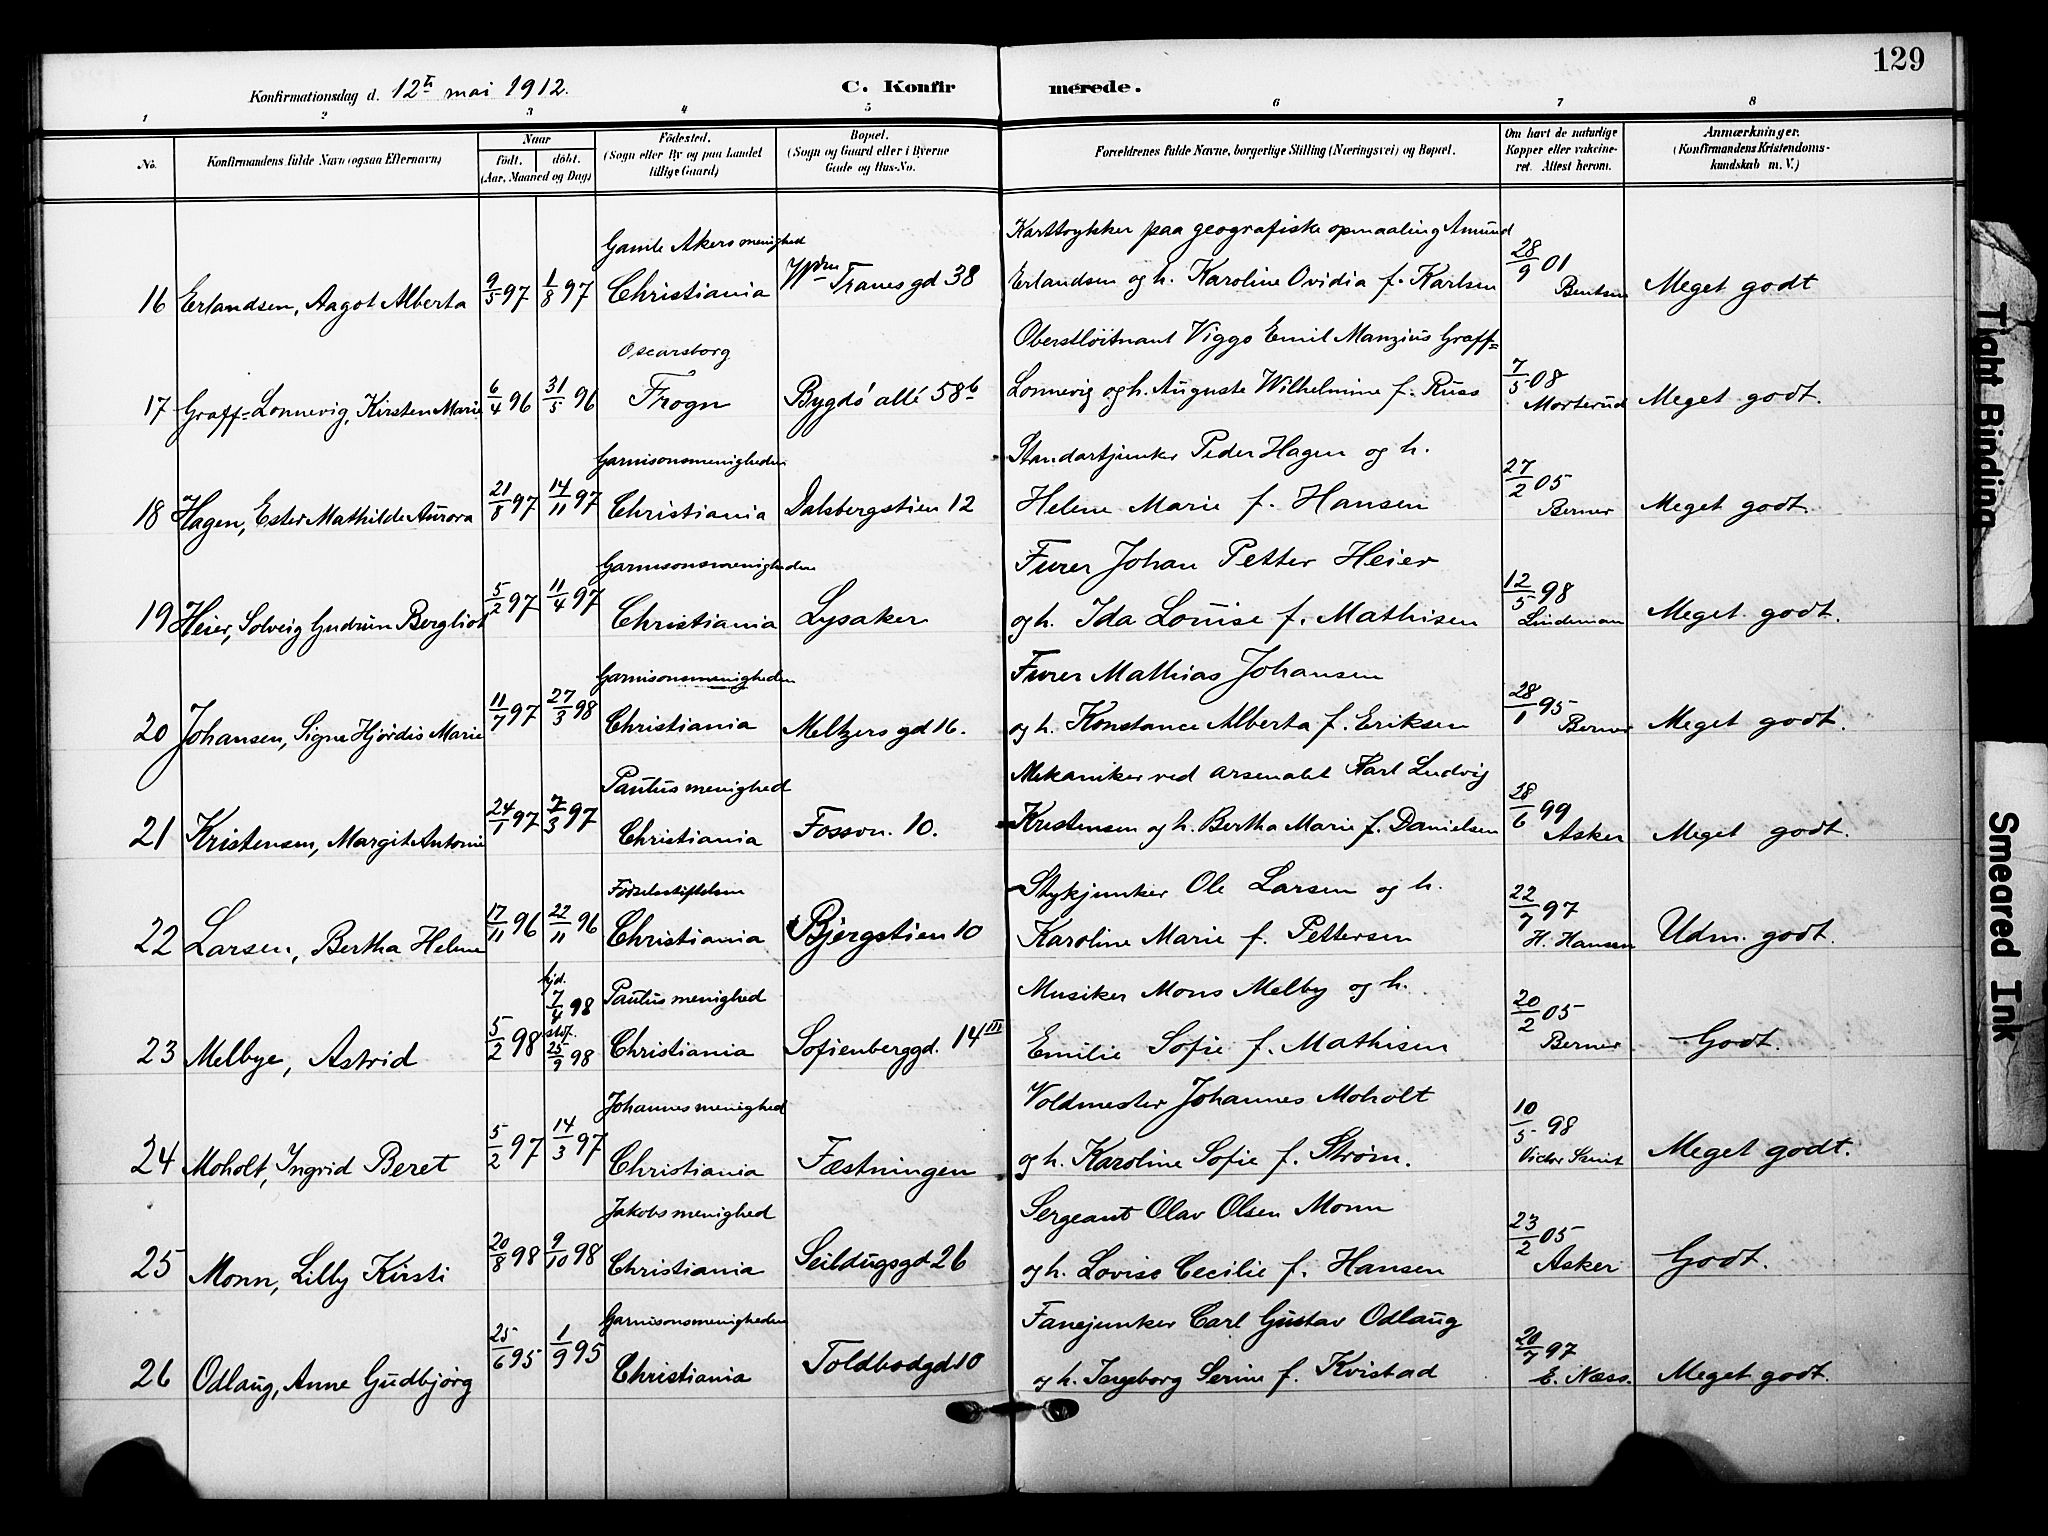 129
Konfirmationsdag d. 12te mai 1912. C. Konfirmerede.
1 2 3 4 5 6 7 8
No. Konfirmandens fulde Navn (ogsaa Efternavn) Naar født. døbt. (Aar, Maaned og Dag) Fødested. (Sogn eller By og paa Landet tillige Gaard) Bopæl. (Sogn og Gaard eller i Byerne Gade og Hus-No. Forældrenes fulde Navne, borgerlige Stilling (Næringsvei) og Bopæl. Om havt de naturlige Kopper eller vakcineret. Attest herom. Anmærkninger. (Konfirmandens Kristendomskundskab m. V.)
Gamle Akers menighed Karttrykker paa geografiske opmaaling Amund
16 Erlandsen, Aagot Alberta 9/5 97 1/8 97 Christiania Tranes gd 38 Erlandsen og h. Karoline Ovidia f. Karlsen 28/9 01 Bentsen Meget godt
Oscarsborg Oberstløitnant Viggo Emil Manzius Graff=
17 Graff=Lonnevig, Kirsten Marie 6/4 96 31/5 96 Frogn Bygdö allé 58b Lonnevig og h. Auguste Wilhelmine f. Russ 7/5 08 Morterud Meget godt.
Garnisonsmenigheden Standartjunker Peder Hagen og h.
18 Hagen, Ester Mathilde Aurora 21/8 97 14/11 97 Christiania Dalsbergstien 12 Helene Marie f. Hansen 27/2 05 Berner Meget godt.
Garnisonsmenigheden Furer Johan Petter Heier
19 Heier, Solveig Gudrun Bergliot 5/2 97 11/4 97 Christiania Lysaker og h. Ida Louise f. Mathisen 12/5 98 Lindeman Meget godt.
Garnisonsmenigheden Furer Mathias Johansen
20 Johansen, Signe Hjördis Marie 11/7 97 27/3 98 Christiania Meltzers gd 16. og h. Konstance Alberta f. Eriksen 28/1 95 Berner Meget godt.
Paulus menighed Mekaniker ved arsenalet Karl Ludvig
21 Kristensen, Margit Antonie 24/1 97 7/3 97 Christiania Fossv. 10. Kristensen og h. Bertha Marie f. Danielsen 28/6 99 Asker Meget godt.
Fødselsstiftelsen Stykjunker Ole Larsen og h.
22 Larsen, Bertha Helene 17/11 96 22/11 96 Christiania Bjergstien 10 Karoline Marie f. Pettersen 22/7 97 H. Hansen Udm. godt.
hjd. 7/4 98 Paulus menighed Musiker Mons Melby og h.
23 Melbye, Astrid 5/2 98 stdf. 25/9 98 Christiania Sofienberggd. 14III Emilie Sofie f. Mathisen 20/2 05 Berner Godt.
Johannes menighed Voldmester Johannes Moholt
24 Moholt, Ingrid Beret 5/2 97 14/3 97 Christiania Fæstningen og h. Karoline Sofie f. Strøm. 10/5 98 Meget godt.
Jakobs menighed Sergeant Olav Olsen Monn
25 Monn, Lilly Kirsti 20/8 98 9/10 98 Christiania Seildugsgd 26 og h. Lovise Cecilie f. Hansen 23/2 05 Asker Godt.
Garnisonsmenigheden Fanejunker Carl Gustav Odlaug
26 Odlaug, Anne Gudbjörg 25/6 95 1/9 95 Christiania Toldbodgd 10 og h. Ingeborg Serine f. Kvistad 20/7 97 E. Næss. Meget godt.
Tight Binding
Smeared Ink